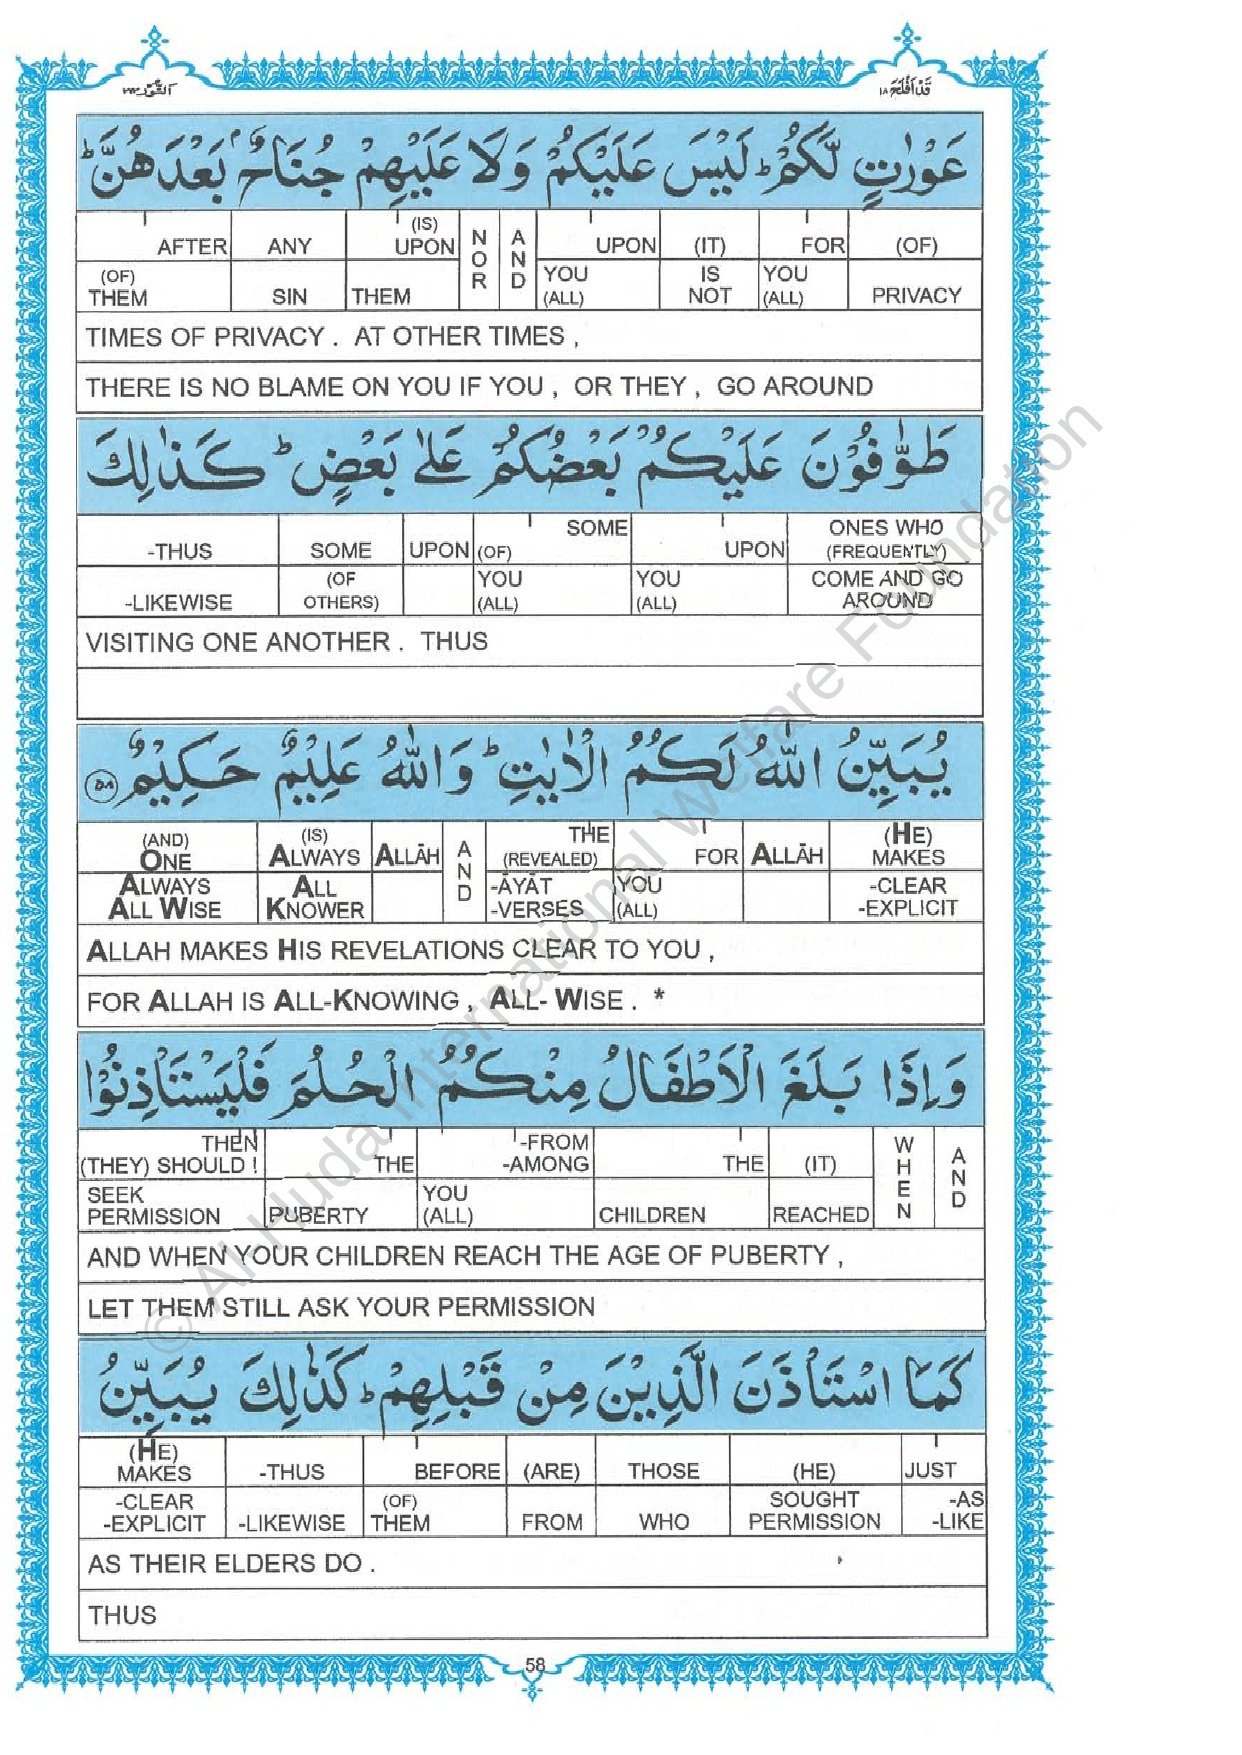 النور ٢٤
قد افلح ١٨
عَوْرٰتٍ لَّكُمْ ؕ لَيْسَ عَلَيْكُمْ وَلَا عَلَيْهِمْ جُنَاحٌۢ بَعْدَهُنَّ ؕ
AFTER ANY (IS) UPON NOR AND UPON (IT) FOR (OF)
(OF) THEM SIN THEM YOU (ALL) IS NOT YOU (ALL) PRIVACY
TIMES OF PRIVACY . AT OTHER TIMES ,
THERE IS NO BLAME ON YOU IF YOU , OR THEY , GO AROUND
طَوّٰفُوْنَ عَلَيْكُمْ بَعْضُكُمْ عَلٰى بَعْضٍ ؕ كَذٰلِكَ
-THUS SOME UPON (OF) SOME UPON ONES WHO (FREQUENTLY)
-LIKEWISE (OF OTHERS) YOU (ALL) YOU (ALL) COME AND GO AROUND
VISITING ONE ANOTHER . THUS
يُبَيِّنُ اللّٰهُ لَكُمُ الْاٰيٰتِ ؕ وَاللّٰهُ عَلِيْمٌ حَكِيْمٌ ٥٨
(AND) ONE (IS) ALWAYS ALLĀH AND THE (REVEALED) FOR ALLĀH (HE) MAKES
ALWAYS ALL WISE ALL KNOWER -ĀYĀT -VERSES YOU (ALL) -CLEAR -EXPLICIT
ALLAH MAKES HIS REVELATIONS CLEAR TO YOU ,
FOR ALLAH IS ALL-KNOWING , ALL- WISE . *
وَاِذَا بَلَغَ الْاَطْفَالُ مِنْكُمُ الْحُلُمَ فَلْيَسْتَاْذِنُوْا
THEN (THEY) SHOULD ! THE -FROM -AMONG THE (IT) WHEN AND
SEEK PERMISSION PUBERTY YOU (ALL) CHILDREN REACHED
AND WHEN YOUR CHILDREN REACH THE AGE OF PUBERTY ,
LET THEM STILL ASK YOUR PERMISSION
كَمَا اسْتَاْذَنَ الَّذِيْنَ مِنْ قَبْلِهِمْ ؕ كَذٰلِكَ يُبَيِّنُ
(HE) MAKES -THUS BEFORE (ARE) THOSE (HE) JUST
-CLEAR -EXPLICIT -LIKEWISE (OF) THEM FROM WHO SOUGHT PERMISSION -AS -LIKE
AS THEIR ELDERS DO .
THUS
58
© Al Huda International Welfare Foundation